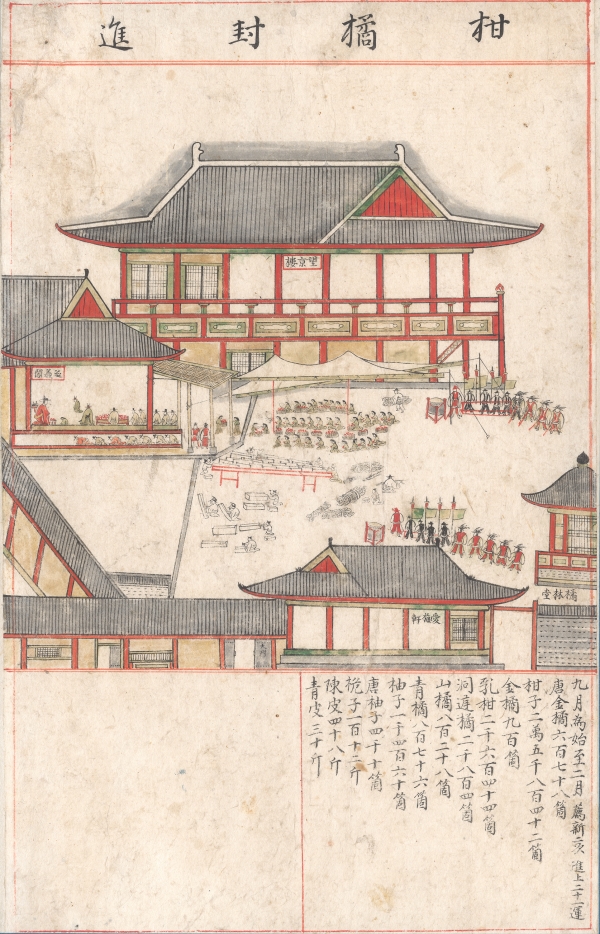 柑橘封進
望京樓
橘林堂
愛梅軒
九月為始至二月 薦新二次 進上二十一運
唐金橘六百七十八箇
柑子二萬五千八百四十二箇
金橘九百箇
乳柑二千六百四十四箇
洞庭橘二千八百四箇
山橘八百二十八箇
青橘八百七十六箇
柚子一千四百六十箇
唐柚子四千十箇
梔子一百十二斤
陳皮四十八斤
青皮三十斤